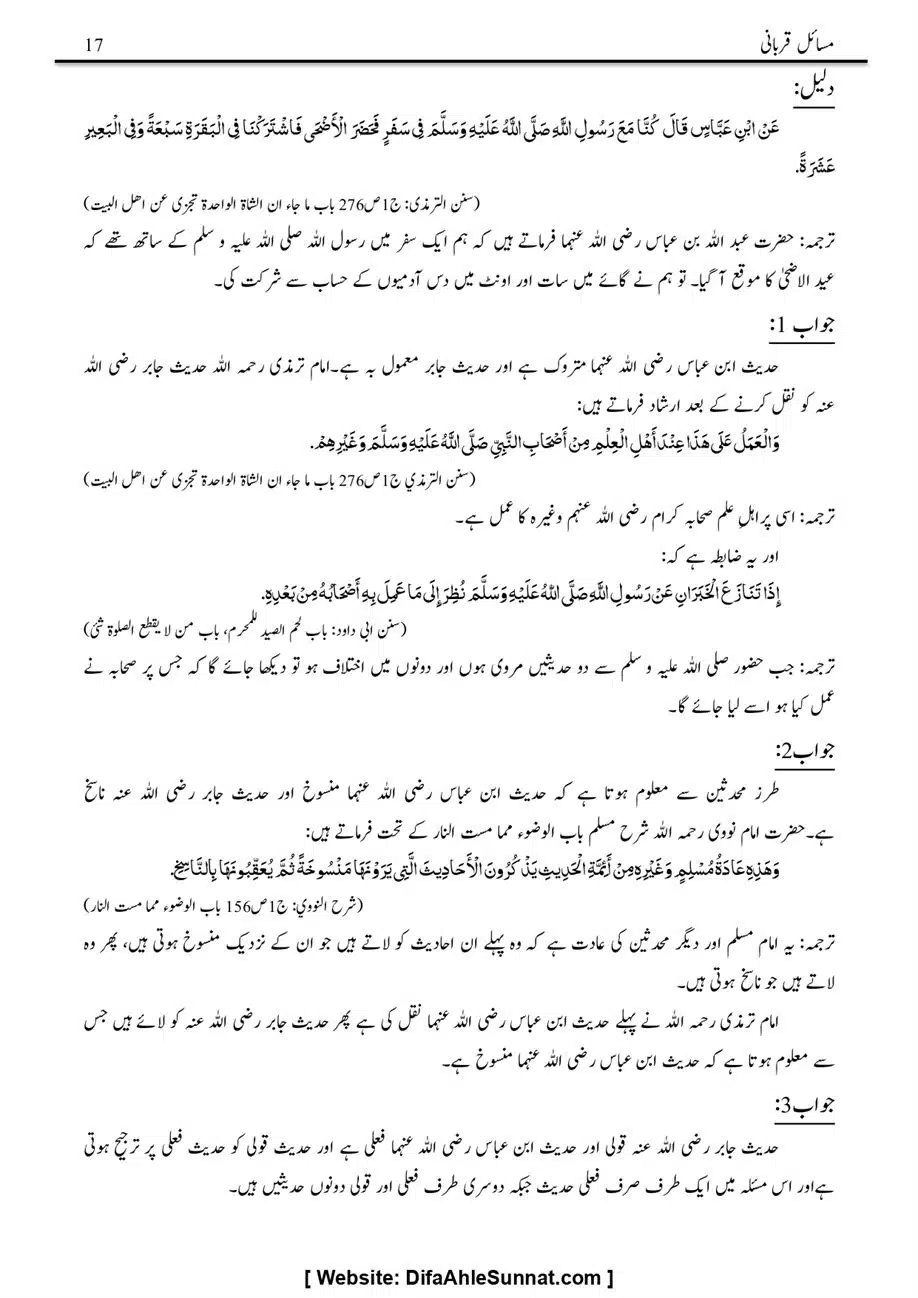 مسائل قربانی 17
دلیل:
عَنْ ابْنِ عَبَّاسٍ قَالَ كُنَّا مَعَ رَسُولِ اللَّهِ صَلَّى اللَّهُ عَلَيْهِ وَسَلَّمَ فِي سَفَرٍ فَحَضَرَ الْأَضْحَى فَاشْتَرَكْنَا فِي الْبَقَرَةِ سَبْعَةً وَفِي الْبَعِيرِ
عَشَرَةً.
(سنن الترمذی: ج1ص276 باب ما جاء ان الشاة الواحدة تجزی عن اهل البيت)
ترجمہ: حضرت عبد اللہ بن عباس رضی اللہ عنہما فرماتے ہیں کہ ہم ایک سفر میں رسول اللہ صلی اللہ علیہ و سلم کے ساتھ تھے کہ
عید الاضحیٰ کا موقع آ گیا۔ تو ہم نے گائے میں سات اور اونٹ میں دس آدمیوں کے حساب سے شرکت کی۔
جواب 1:
حدیث ابن عباس رضی اللہ عنہما متروک ہے اور حدیث جابر معمول بہ ہے۔امام ترمذی رحمہ اللہ حدیث جابر رضی اللہ
عنہ کو نقل کرنے کے بعد ارشاد فرماتے ہیں:
وَالْعَمَلُ عَلَى هَذَا عِنْدَ أَهْلِ الْعِلْمِ مِنْ أَصْحَابِ النَّبِيِّ صَلَّى اللَّهُ عَلَيْهِ وَسَلَّمَ وَغَيْرِهِمْ.
(سنن الترمذي ج1ص276 باب ما جاء ان الشاة الواحدة تجزی عن اهل البيت)
ترجمہ: اسی پراہلِ علم صحابہ کرام رضی اللہ عنہم وغیرہ کا عمل ہے۔
اور یہ ضابطہ ہے کہ:
إِذَا تَنَازَعَ الْخَبَرَانِ عَنْ رَسُولِ اللَّهِ صَلَّى اللَّهُ عَلَيْهِ وَسَلَّمَ نُظِرَ إِلَى مَا عَمِلَ بِهِ أَصْحَابُهُ مِنْ بَعْدِهِ.
(سنن ابی داود: باب لحم الصید للمحرم، باب من لا یقطع الصلوة شئ)
ترجمہ: جب حضور صلی اللہ علیہ و سلم سے دو حدیثیں مروی ہوں اور دونوں میں اختلاف ہو تو دیکھا جائے گا کہ جس پر صحابہ نے
عمل کیا ہو اسے لیا جائے گا۔
جواب2:
طرز محدثین سے معلوم ہوتا ہے کہ حدیث ابن عباس رضی اللہ عنہما منسوخ اور حدیث جابر رضی اللہ عنہ ناسخ
ہے۔حضرت امام نووی رحمہ اللہ شرح مسلم باب الوضوء مما مست النار کے تحت فرماتے ہیں:
وَهَذِهِ عَادَةُ مُسْلِمٍ وَغَيْرِهِ مِنْ أَئِمَّةِ الْحَدِيثِ يَذْكُرُونَ الْأَحَادِيثَ الَّتِي يَرَوْنَهَا مَنْسُوخَةً ثُمَّ يُعَقِّبُونَهَا بِالنَّاسِخِ.
(شرح النووي: ج1ص156 باب الوضوء مما مست النار)
ترجمہ: یہ امام مسلم اور دیگر محدثین کی عادت ہے کہ وہ پہلے ان احادیث کو لاتے ہیں جو ان کے نزدیک منسوخ ہوتی ہیں، پھر وہ
لاتے ہیں جو ناسخ ہوتی ہیں۔
امام ترمذی رحمہ اللہ نے پہلے حدیث ابن عباس رضی اللہ عنہما نقل کی ہے پھر حدیث جابر رضی اللہ عنہ کو لائے ہیں جس
سے معلوم ہوتا ہے کہ حدیث ابن عباس رضی اللہ عنہما منسوخ ہے۔
جواب3:
حدیث جابر رضی اللہ عنہ قولی اور حدیث ابن عباس رضی اللہ عنہما فعلی ہے اور حدیث قولی کو حدیث فعلی پر ترجیح ہوتی
ہےاور اس مسئلہ میں ایک طرف صرف فعلی حدیث جبکہ دوسری طرف فعلی اور قولی دونوں حدیثیں ہیں۔
[ Website: DifaAhleSunnat.com ]